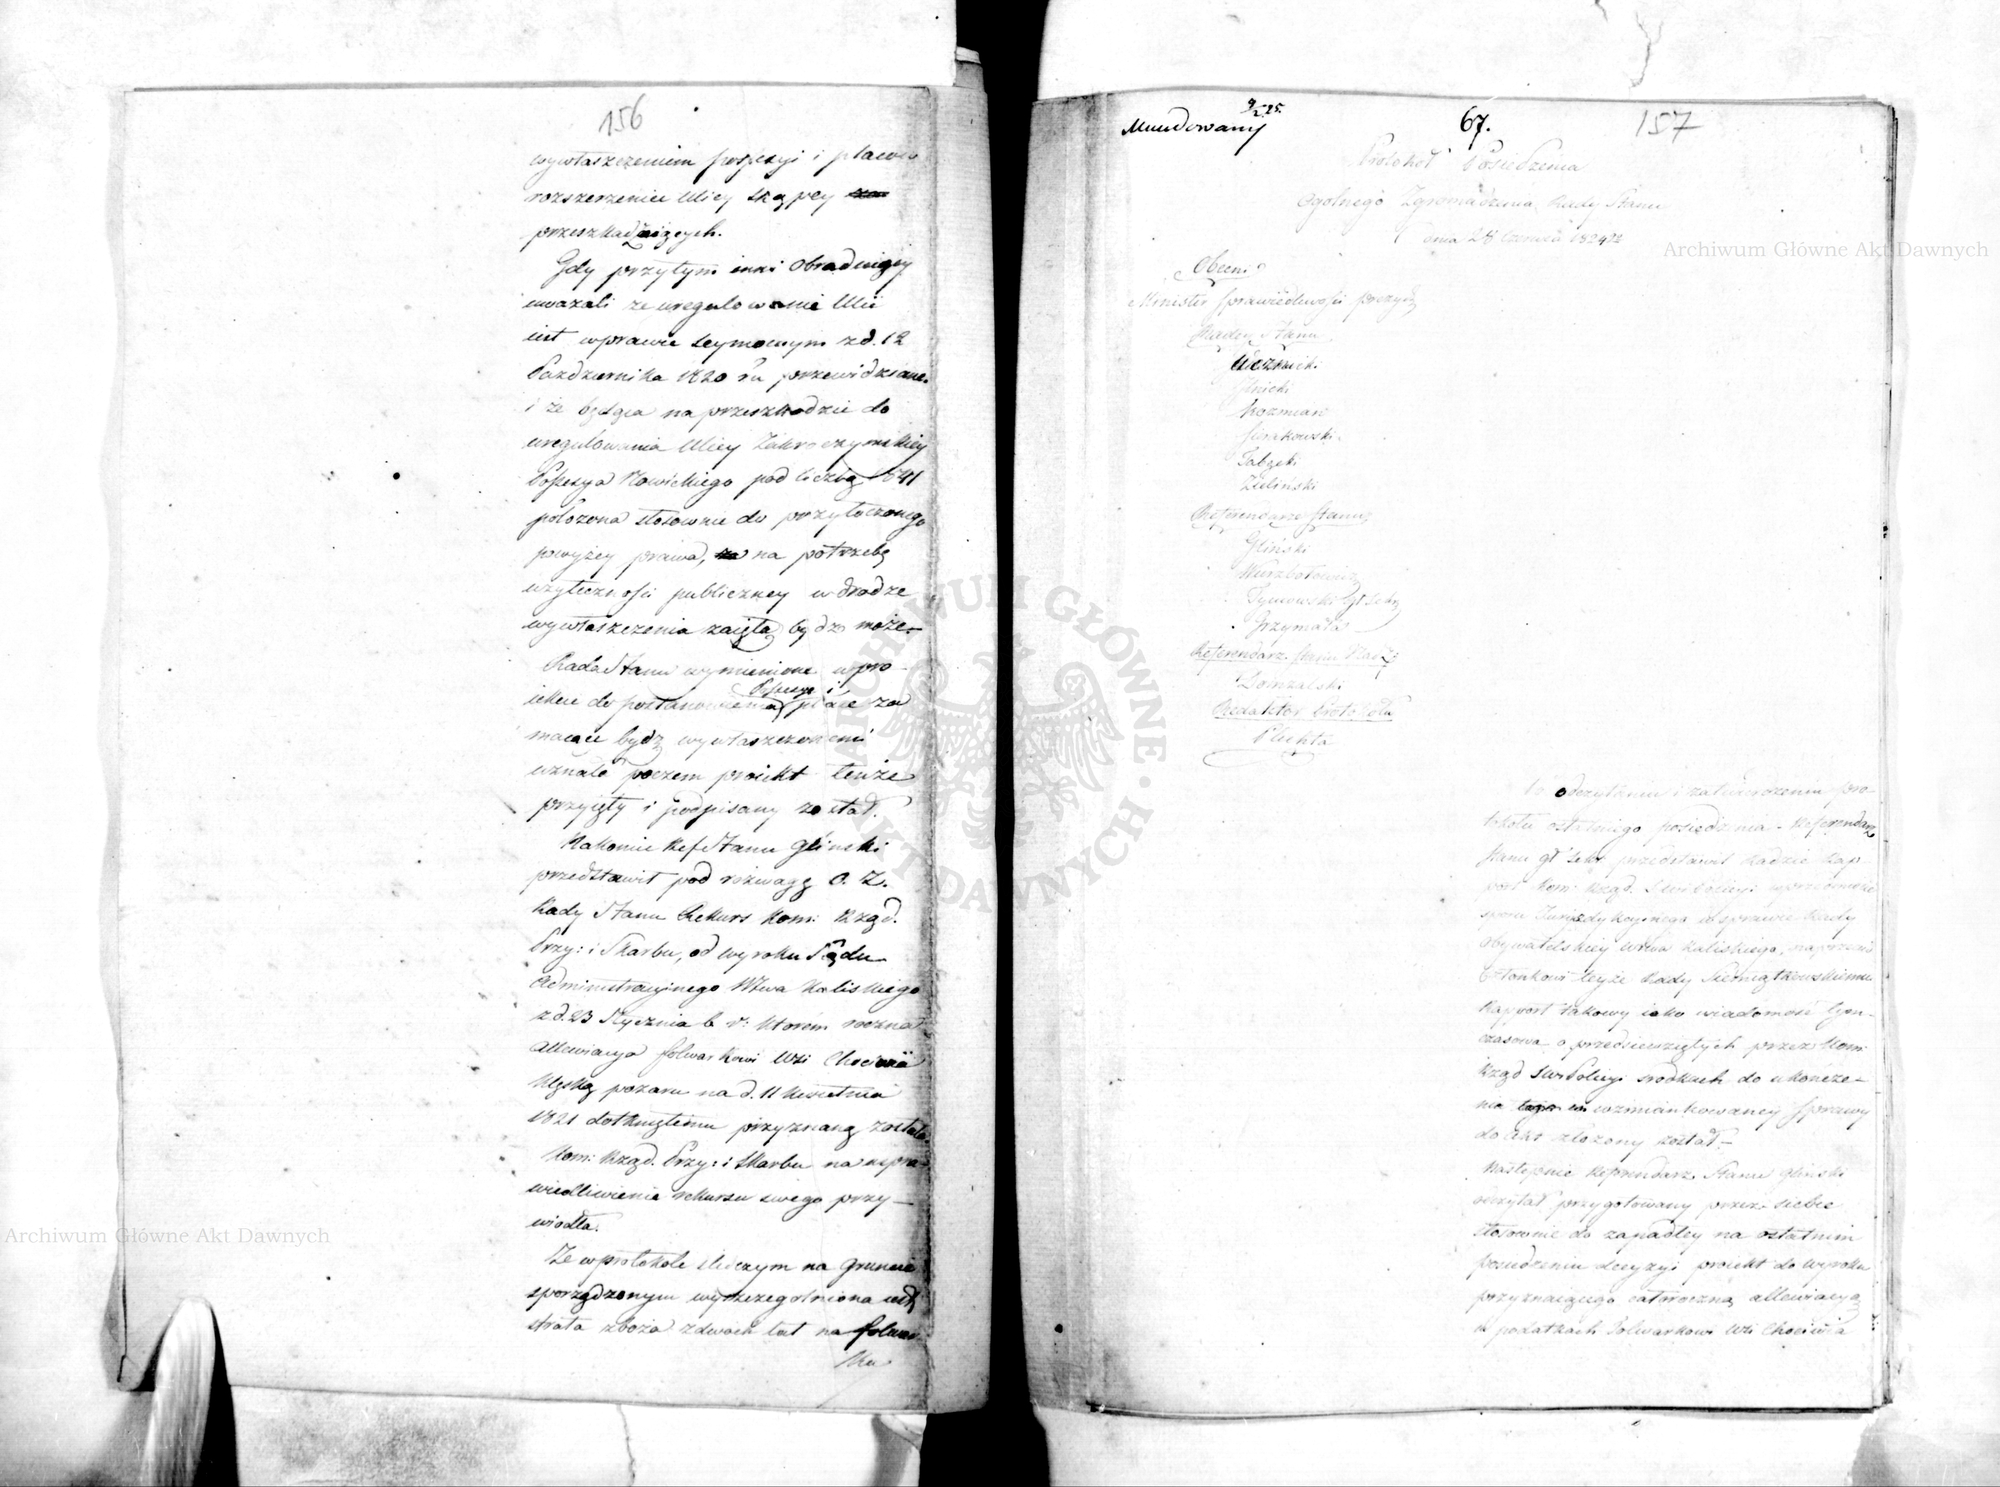 156
wywłaszczeniem possessyi i placów
rozszerzeniu Ulicy Skąpey
przeszkadzaiących.
Gdy przytym inni Obraduiący
uważali że uregulowanie Ulic
iest w prawie Seymowym z d. 12
Października 1820 ru przewidziane
i że będąca na przeszkodzie do
uregulowania Ulicy Zakroczymskiey
Possesya Nowickiego pod liczbą 1841
położona stosownie do przytoczonego
powyżey prawa, na potrzebę
użyteczności publiczney w drodze
wywłaszczenia zaiętą bydź może.
Rada Stanu wymienione w pro-
iekcie do postanowienia Possesye i place za
maiące bydź wywłaszczonemi
uznała poczem proiekt tenże
przyięty i podpisany został.
Nakoniec Ref Stanu Gliński
przedstawił pod rozwagę O. Z.
Rady Stanu Rekurs Kom: Rząd.
Przy: i Skarbu, od wyroku Sądu
Administracyinego Wtwa Kaliskiego
z d. 23 Stycznia b r: którem
allewiacya folwarkowi Wsi Chociwia
klęską pożaru na d. 11 Kwietnia
1821 dotkniętemu przyznaną została.
Kom: Rząd. Przy: i Skarbu na uspra-
wiedliwienie rekursu swego przy-
wiodła.
Że w protokole śledczym na gruncie
sporządzonym wyszczególniona iest
strata zboża z dwóch lat na folwar-
ku
Mundowany
67.
157
Protokół Posiedzenia
Ogólnego Zgromadzenia Rady Stanu
dnia 28 Czerwca
Obecni
Minister Sprawiedliwości prezyd:
Radcy Stanu
Woźnicki
Gliszcki
Koźmian
Sierakowski
Zieliński
Referendarze Stanu
Gliński
Tymowski gł Sekr
Grzymała
Referendarz Stanu Nadz:
Domżalski
Redaktor Protokółu
Pluchta
Po odczytaniu i zatwierdzeniu pro-
tokołu ostatniego posiedzenia - Referendarz
Stanu gł Sekr przedstawił Radzie Rap-
port Kom: Rząd.
sporu Jurysdykcyinego w sprawie Rady
Obywatelskiey Wtwa Kaliskiego, naprzeciw
Członkowi teyże Rady Siemiątkowskiemu
Rapport takowy iako wiadomość tym-
czasową o przedsięwziętych przez Kom:
Rząd środkach do ukończe-
nia wzmiankowaney sprawy
do akt złożony został -
Następnie Referendarz Stanu Gliński
odczytał przygotowany przez siebie
stosownie do zapadłey na ostatnim
posiedzeniu decyzyi proiekt do wyroku
przyznaiącego całoroczną allewiacyą
w podatkach folwarkowi Wsi Chociwia
Archiwum Główne Akt Dawnych
Archiwum Główne Akt Dawnych
ARCHIWUM GŁÓWNE AKT DAWNYCH